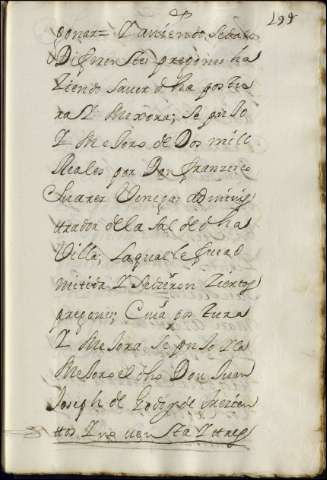 gonar= Y aviendo se dado
Diferentes pregones ha
ziendo saver dha postu
ra Y Mexora; se puso
Y Mejoro de Dos mill
Reales por Don Franzisco
Suarez Venegas adminis
trador de la sal de dha
Villa; la qual le fue ad
mitida Y se dieron ziertos
pregones; Cuia postura
Y Mejora se puso Y la
Mejoro el dho Don Juan
Joseph de Godoy de
ttos Y nobenta Y tres